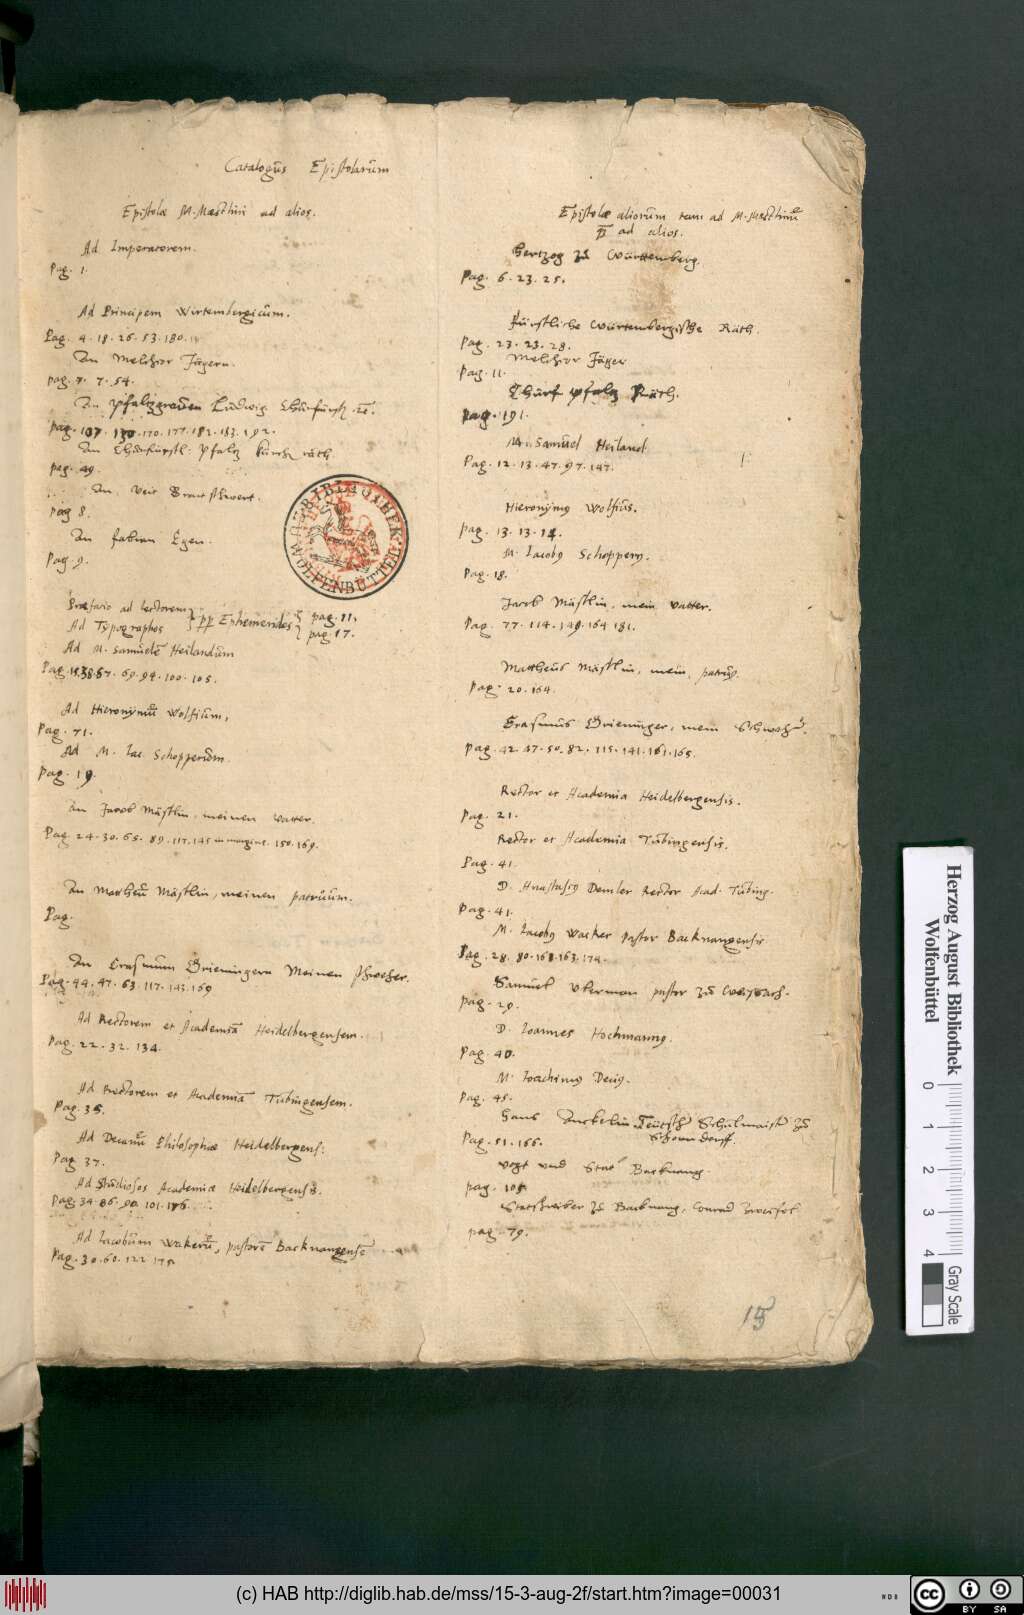 Catalogus Epistolarum
Epistolæ M. Mæstlini ad alios.
Ad Imperatorem.
Pag. 1.
Ad Principem Wirtembergicum.
Pag. 4. 18. 26. 53. 180.
An Melchior Jägern.
pag. 7. 54.
An Pfaltzgraven Ludwig Churfürst
pag. 170. 177. 182. 183. 192.
An Churfürstl. Pfaltz Kirch räth
pag. 49.
An Veit
pag 8.
An fabian Egen.
Pag. 9.
Præfatio ad lectorem } Ephemerides } pag. 11.
Ad Typographos } pag. 17.
Ad M. Samuelē Heilandum
Pag. 69. 94. 100. 105.
Ad Hieronymū Wolfium,
Pag. 71.
Ad M. Iac. Schopperum.
Pag. 19.
An Jacob Mästlin, meinen Vatter.
Pag. 24. 30. 65. 89. 117. 145 in margine. 150. 169.
An Mattheū Mästlin, meinen patruum.
Pag.
An Erasmum Grieningern Meinen schweher.
Pag. 44. 47. 63. 117. 143. 169
Ad Rectorem et Academiā Heidelbergensem.
Pag. 22. 32. 134.
Ad Rectorem et Academiā Tubingensem.
Pag. 35.
Ad Decanū Philosophicæ Heidelbergens:
Pag. 37.
Ad Studiosos Academiæ Heidelbergensis.
Pag. 34. 86. 90. 101. 176.
Ad Iacobum Wakerū, pastorē Backnangensē
Pag. 30. 60. 122. 175.
Epistolæ aliorum tam ad M. Mæstlinū
ad alios.
Hertzog zu Württemberg.
Pag. 6. 23. 25.
Fürstliche Würtembergische Räth.
Pag. 23. 23. 28.
Melchior Jäger
Pag. 11.
Churf Pfaltz Räth.
pag. 191.
M. Samuel Heiland
Pag. 12. 13. 47. 97. 147.
Hieronymus Wolfius.
pag. 13. 13. 14.
M. Iacobus Schopperus.
Pag. 18.
Jacob Mästlin, mein vatter.
Pag. 77. 114. 149. 164 181.
Mattheus Mästlin, mein patruus.
Pag. 20. 164.
Erasmus Grieninger, mein Schweher.
pag. 42. 47. 50. 82. 115. 141. 161. 165.
Rector et Academia Heidelbergensis.
Pag. 21.
Rector et Academia Tubingensis.
Pag. 41.
D. Anastasius Demler Rector Acad. Tubing.
Pag. 41.
M. Iacobus Waker pastor Backnangensis
Pag. 28. 80. 163. 174.
Samuel pastor zu
pag. 29.
D. Ioannes Hochmannus.
Pag. 40.
M. Ioachimus
Pag. 45.
Hans Teutscher Schulmaister zu
Schorndorff.
Pag. 51. 166.
Vogt und Backnang.
pag. 105
Statschreiber zu Backnang, Conrad
pag. 79.
15
BIBLIOTHEK
WOLFENBÜTTEL
Herzog August Bibliothek
Wolfenbüttel
0 1 2 3 4
Gray Scale
(c) HAB http://diglib.hab.de/mss/15-3-aug-2f/start.htm?image=00031
WDB
cc BY SA